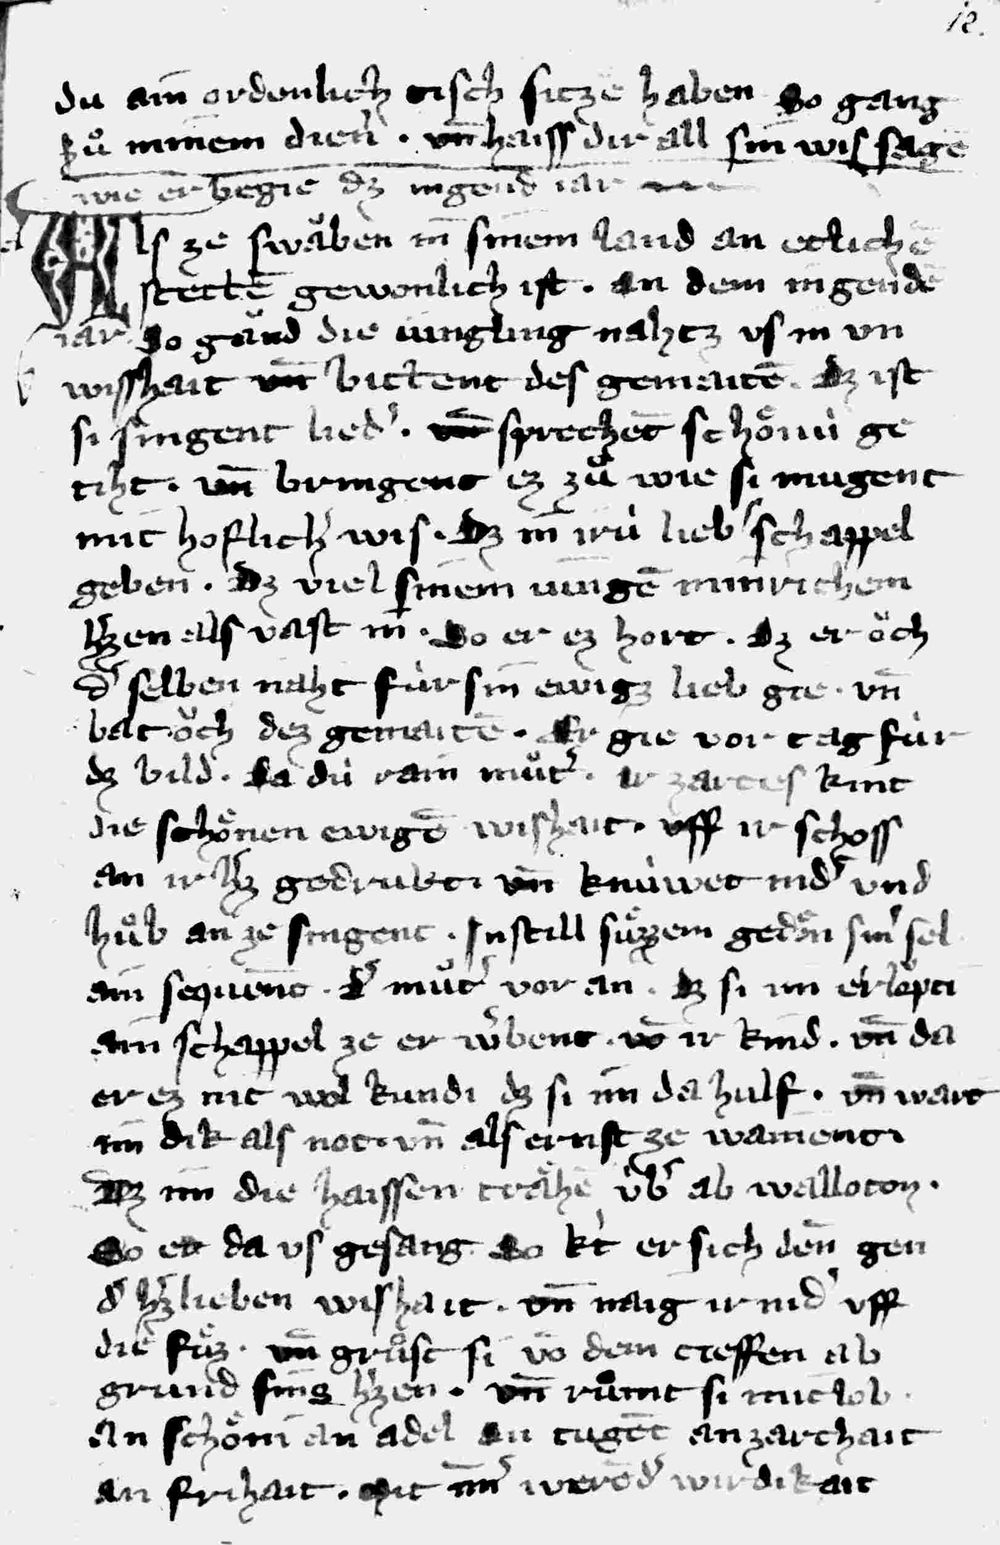 12.
du ain ordenlich tisch sitzē haben So gang
zů minem dien̾ . vn̄ haiss dir all sin wis sagē
wie er begie dz ingend iar
Als ze swåben in sinem land an etlichē
stettē gewonlich ist . an dem ingendē
iar So gånd die iungling nahtz vs in vn
wisshait vn̄ bittent des gemaitē . Dz ist
si singent lied̾ . vn̄ sprechēt schőnù ge
tiht . vn̄ bringent ez zů wie si mugent
mit hoflich̾ wis . Dz in irù lieb̾ schappel
geben . Dz viel sinem iungē minrichem
h̾zen als vast in . So er ez hort . Dz er öch
d̾ selben naht fùr sin ewigz lieb gie . vn̄
bat öch dez gemaitē . Er gie vor tag fùr
dz bild . Da dù rain můt̾ . ir zartes kint
die schőnen ewigē wishait . vff ir schoss
an ir h̾z gedrukt vn̄ knùwet nid̾ vnd
hůb an ze singent . In still sůzzem gedőn sin̾ sel
ain sequenc . D̾ můt̾ vor an . Dz si im erlöpti
ain schappel ze er w̾bent . vō ir kind . vn̄ da
er ez nit wol kundi dz si im da hulf . vn̄ wart
im dik als not vn̄ als ernst ze wainent
Dz im die haissen trähē ùb̾ ab walloton .
So er da vs gesang So kt̾ er sich den gen
d̾ h̾zlieben wishait . vn̄ naig ir nid̾ vff
die fůz . vn̄ grůst si vō dem tieffen ab
grund sins h̾zen . vn̄ růmt si mit lob .
an schőni an adel an tugēt an zarthait
an frihait . Mit im̾ werēd̾ wirdikait